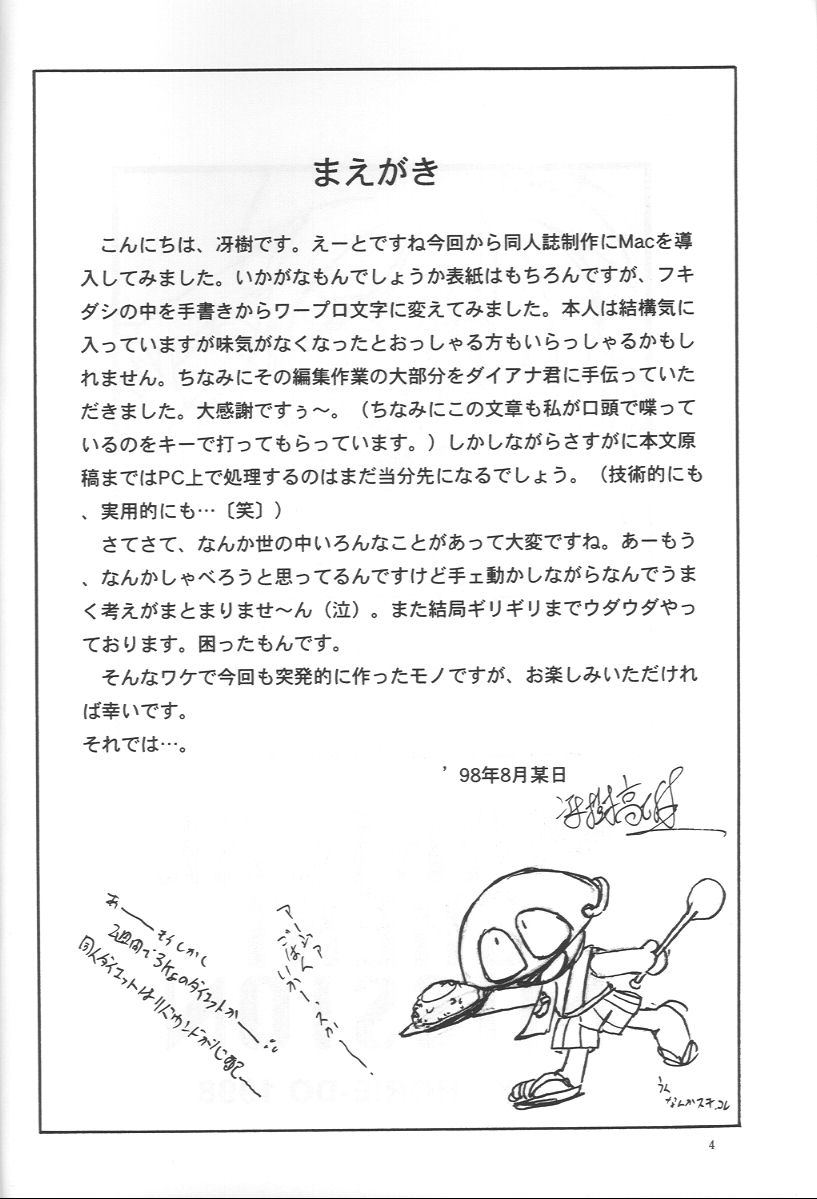 まえがき
　こんにちは、冴樹です。えーとですね今回から同人誌制作にMacを導
入してみました。いかがなもんでしょうか表紙はもちろんですが、フキ
ダシの中を手書きからワープロ文字に変えてみました。本人は結構気に
入っていますが味気がなくなったとおっしゃる方もいらっしゃるかもし
れません。ちなみにその編集作業の大部分をダイアナ君に手伝っていた
だきました。大感謝ですぅ〜。（ちなみにこの文章も私が口頭で喋って
いるのをキーで打ってもらっています。）しかしながらさすがに本文原
稿まではPC上で処理するのはまだ当分先になるでしょう。（技術的にも
、実用的にも…〔笑〕）
　さてさて、なんか世の中いろんなことがあって大変ですね。あーもう
、なんかしゃべろうと思ってるんですけど手ェ動かしながらなんでうま
く考えがまとまりませ〜ん（泣）。また結局ギリギリまでウダウダやっ
ております。困ったもんです。
　そんなワケで今回も突発的に作ったモノですが、お楽しみいただけれ
ば幸いです。
それでは…。
’98年8月某日
冴樹高雄
あーもうしかし
2週間で3Kgのダイエットかー
同人ダイエットはリバウンドが
ごはん
いかーっスかー
うん
なんかスキ コレ
4